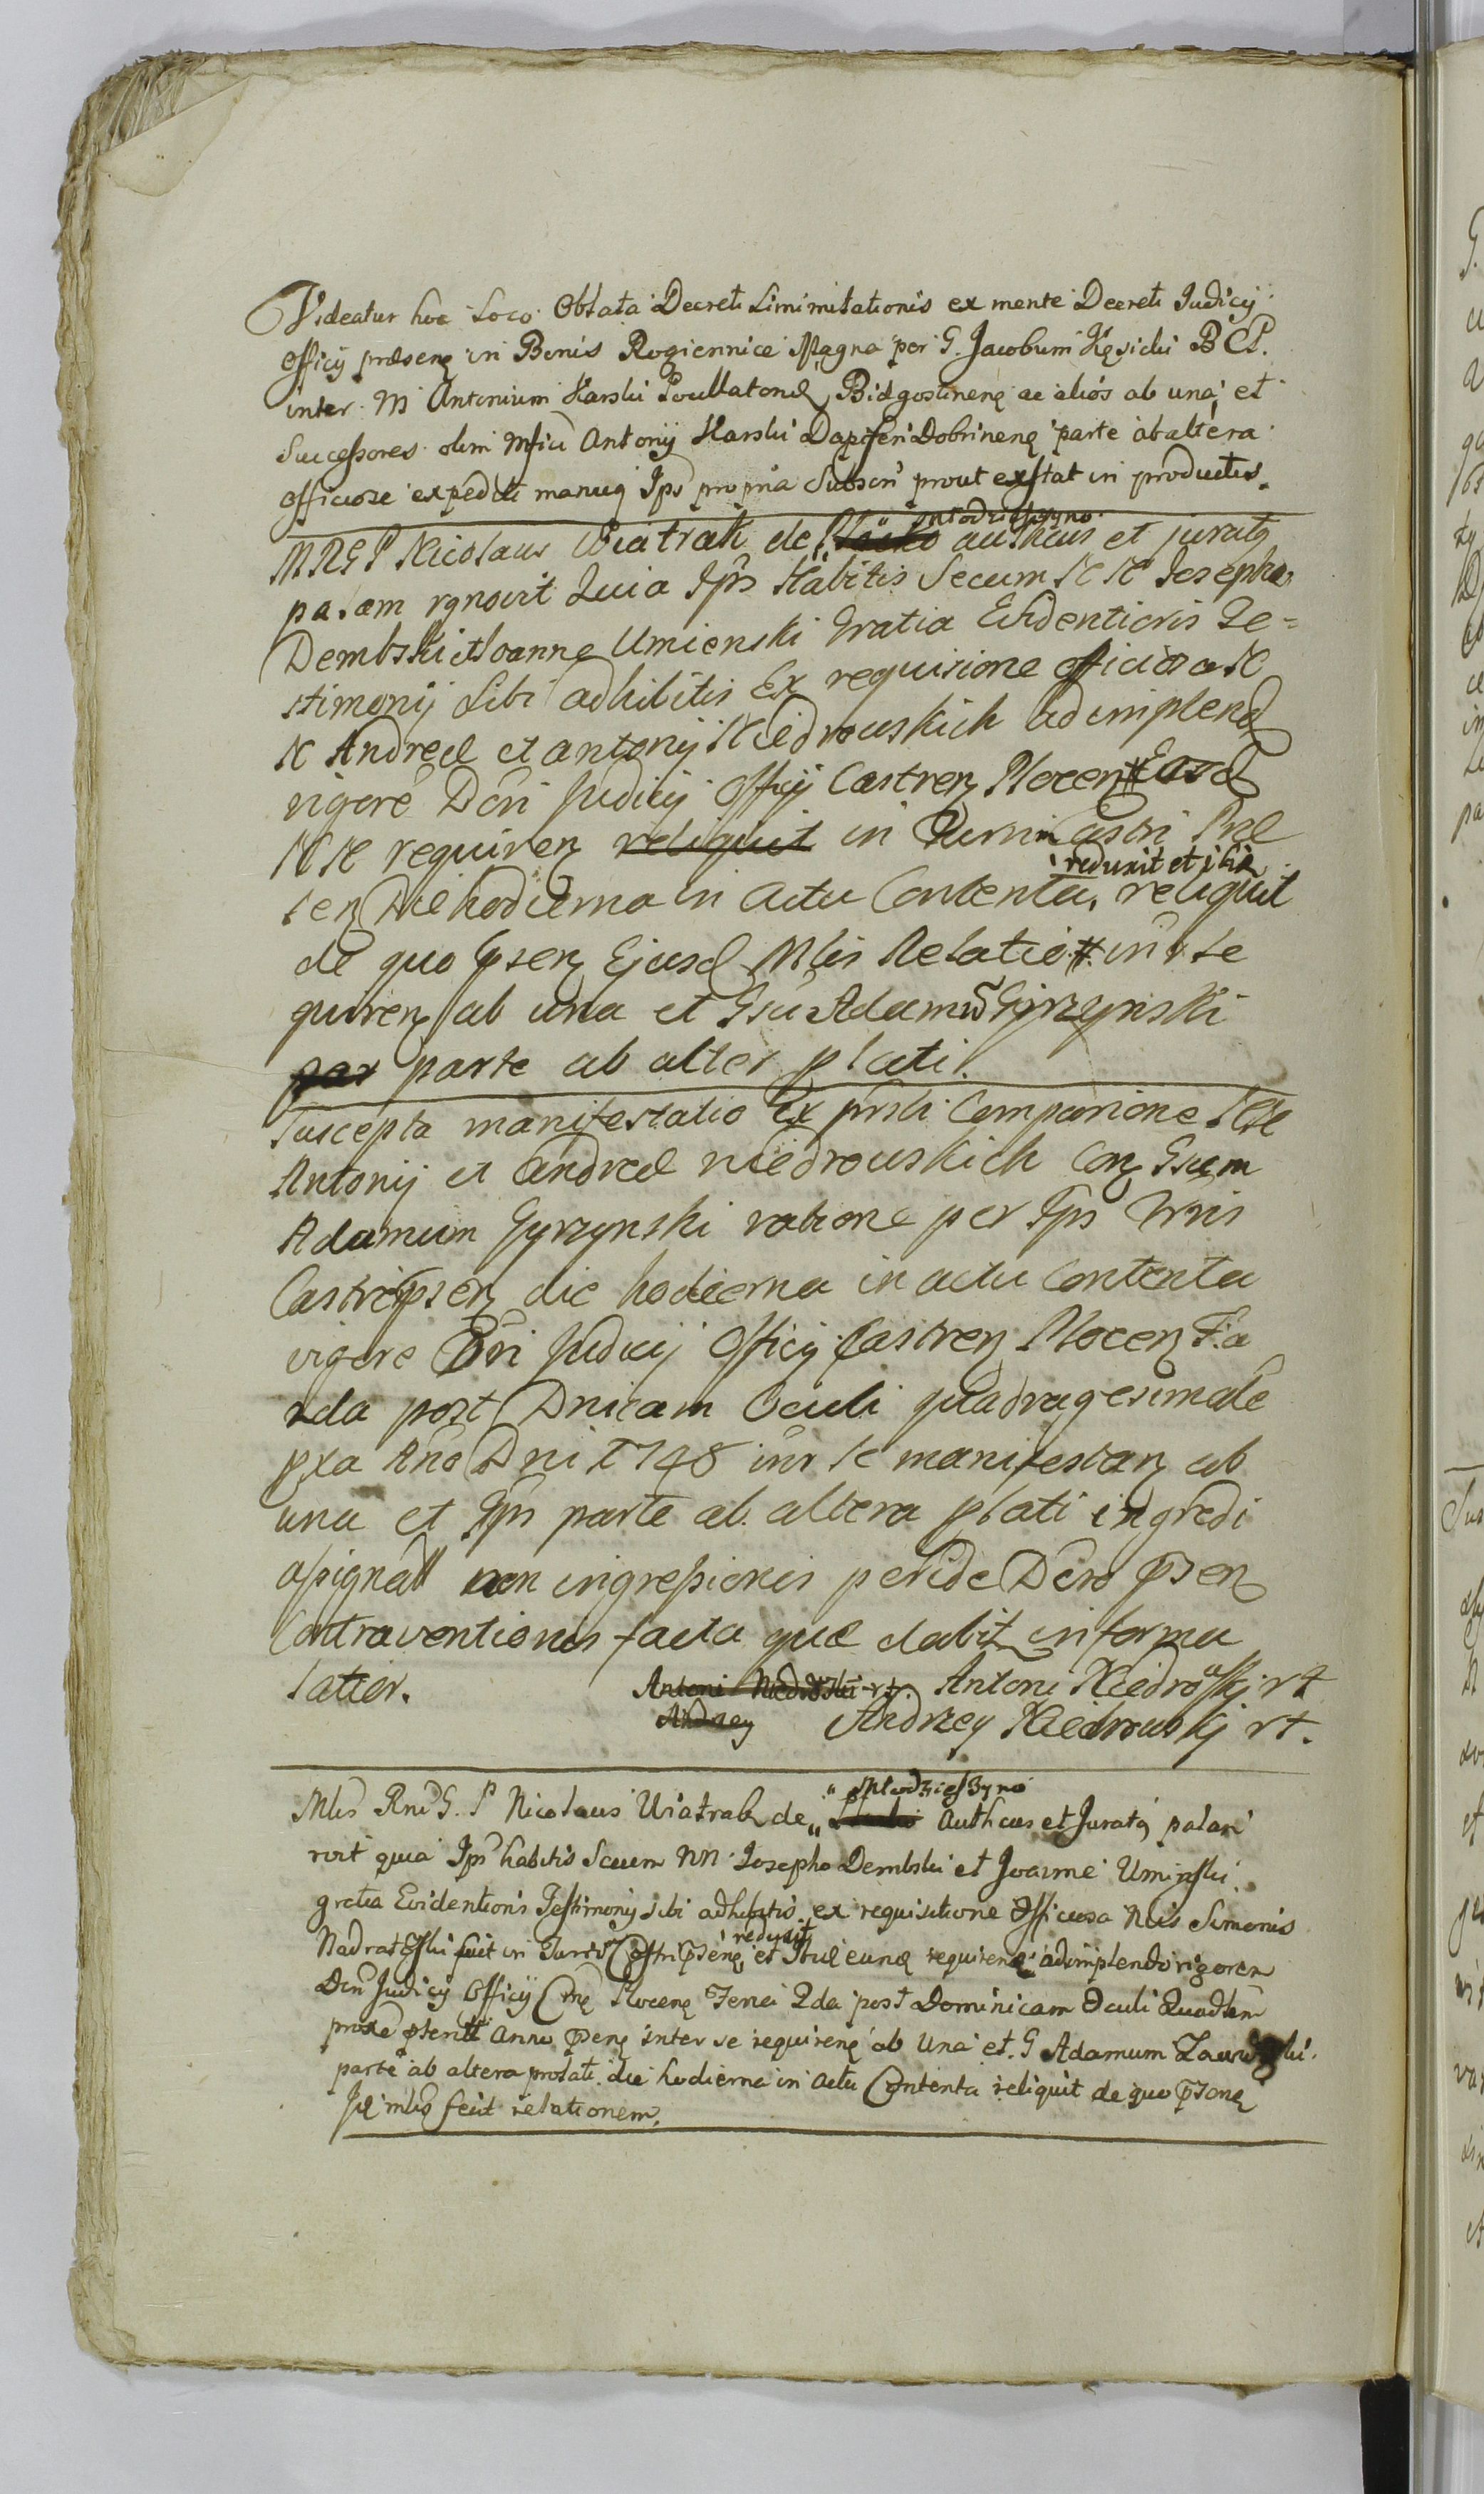 Videatur hoc Loco Oblata Decreti Limimitationis ex mente Decreti Judicij
officij præsenç in Bonis Rogiennice Magna per G. Jacobum Kęsicki B C P.
inter M Antonium Karski Pocillatorę Bidgostinenç ac alios ab una et
Successores olim Mfici Antonij Karski Dapiferi Dobrinenç parte ab altera
officiose expediti manuq Ips propria Subscri prout exstat in productis.
MRGP Nicolaus Wiatrak de młodzieszyno authcus et juratq
palam rgnovit Quia Ips Habitis Secum N N Josepho
Dembski et Joanne Umienski Gratia Evidentioris Te=
stimonij Sibi adhibitis Ex requisitione officiosa N
N Andreæ et antonij Niedrowskich adimplend
vigore Dcri Judicij Officij Castren Plocen Easd
N N requiren reliquit in Turri Castri Præ
sen Die hodierna in Actu Contenta, reduxit et ibiq reliquit
de quo psen Ejusd Mlis Relatio # intr se
quiren ab una et Gsu Adamu Gyrzynski
par parte ab alter plati.
Suscepta manifestatio Ex prsli Comparione N N
Antonij et Andreæ niedrowskich Con Gsum
Adamum Gyrzynski ratione per Ips Trris
Castri psen die hodierna in actu Contenta
vigore Dcri Judicij Officij Castren Plocen Fa
2da post Dnicam Oculi quadragesimale
pxa Ano Dni 1748 intr se manifestan ab
una et Ips parte ab altera plati ingredi
assignatt non ingressionis peride Dcro psen
Contraventionis facta quæ dabit in forma
latior. Antoni Niedroski rt. Antoni Niedrowskj rt
Andrzey Andrzey Niedrowskj rt.
Mlis Rni G. P Nicolaus Wiatrak de młodzieszyno Authcus et Juratq palam
rvit quia Ips habitis Secum NN Josepho Dembski et Joanne Uminski
gratia Evidentioris Testimonij sibi adhibitis ex requisitione Officiosa Nlis Simonis
Nadratoski fuit in Turri Castri psenç, reduxit et Ibiq eund requirenç adimplendo vigorem
Dcri Judicij Officij Cnç Plocenç Feria 2da post Dominicam Oculi Quadlem
proxe pteritt Anno psenç inter se requirenç ab Una et G Adamum
parte ab altera prolati die hodierna in actu Contenta reliquit de quo psonę
Id mlis fecit relationem.